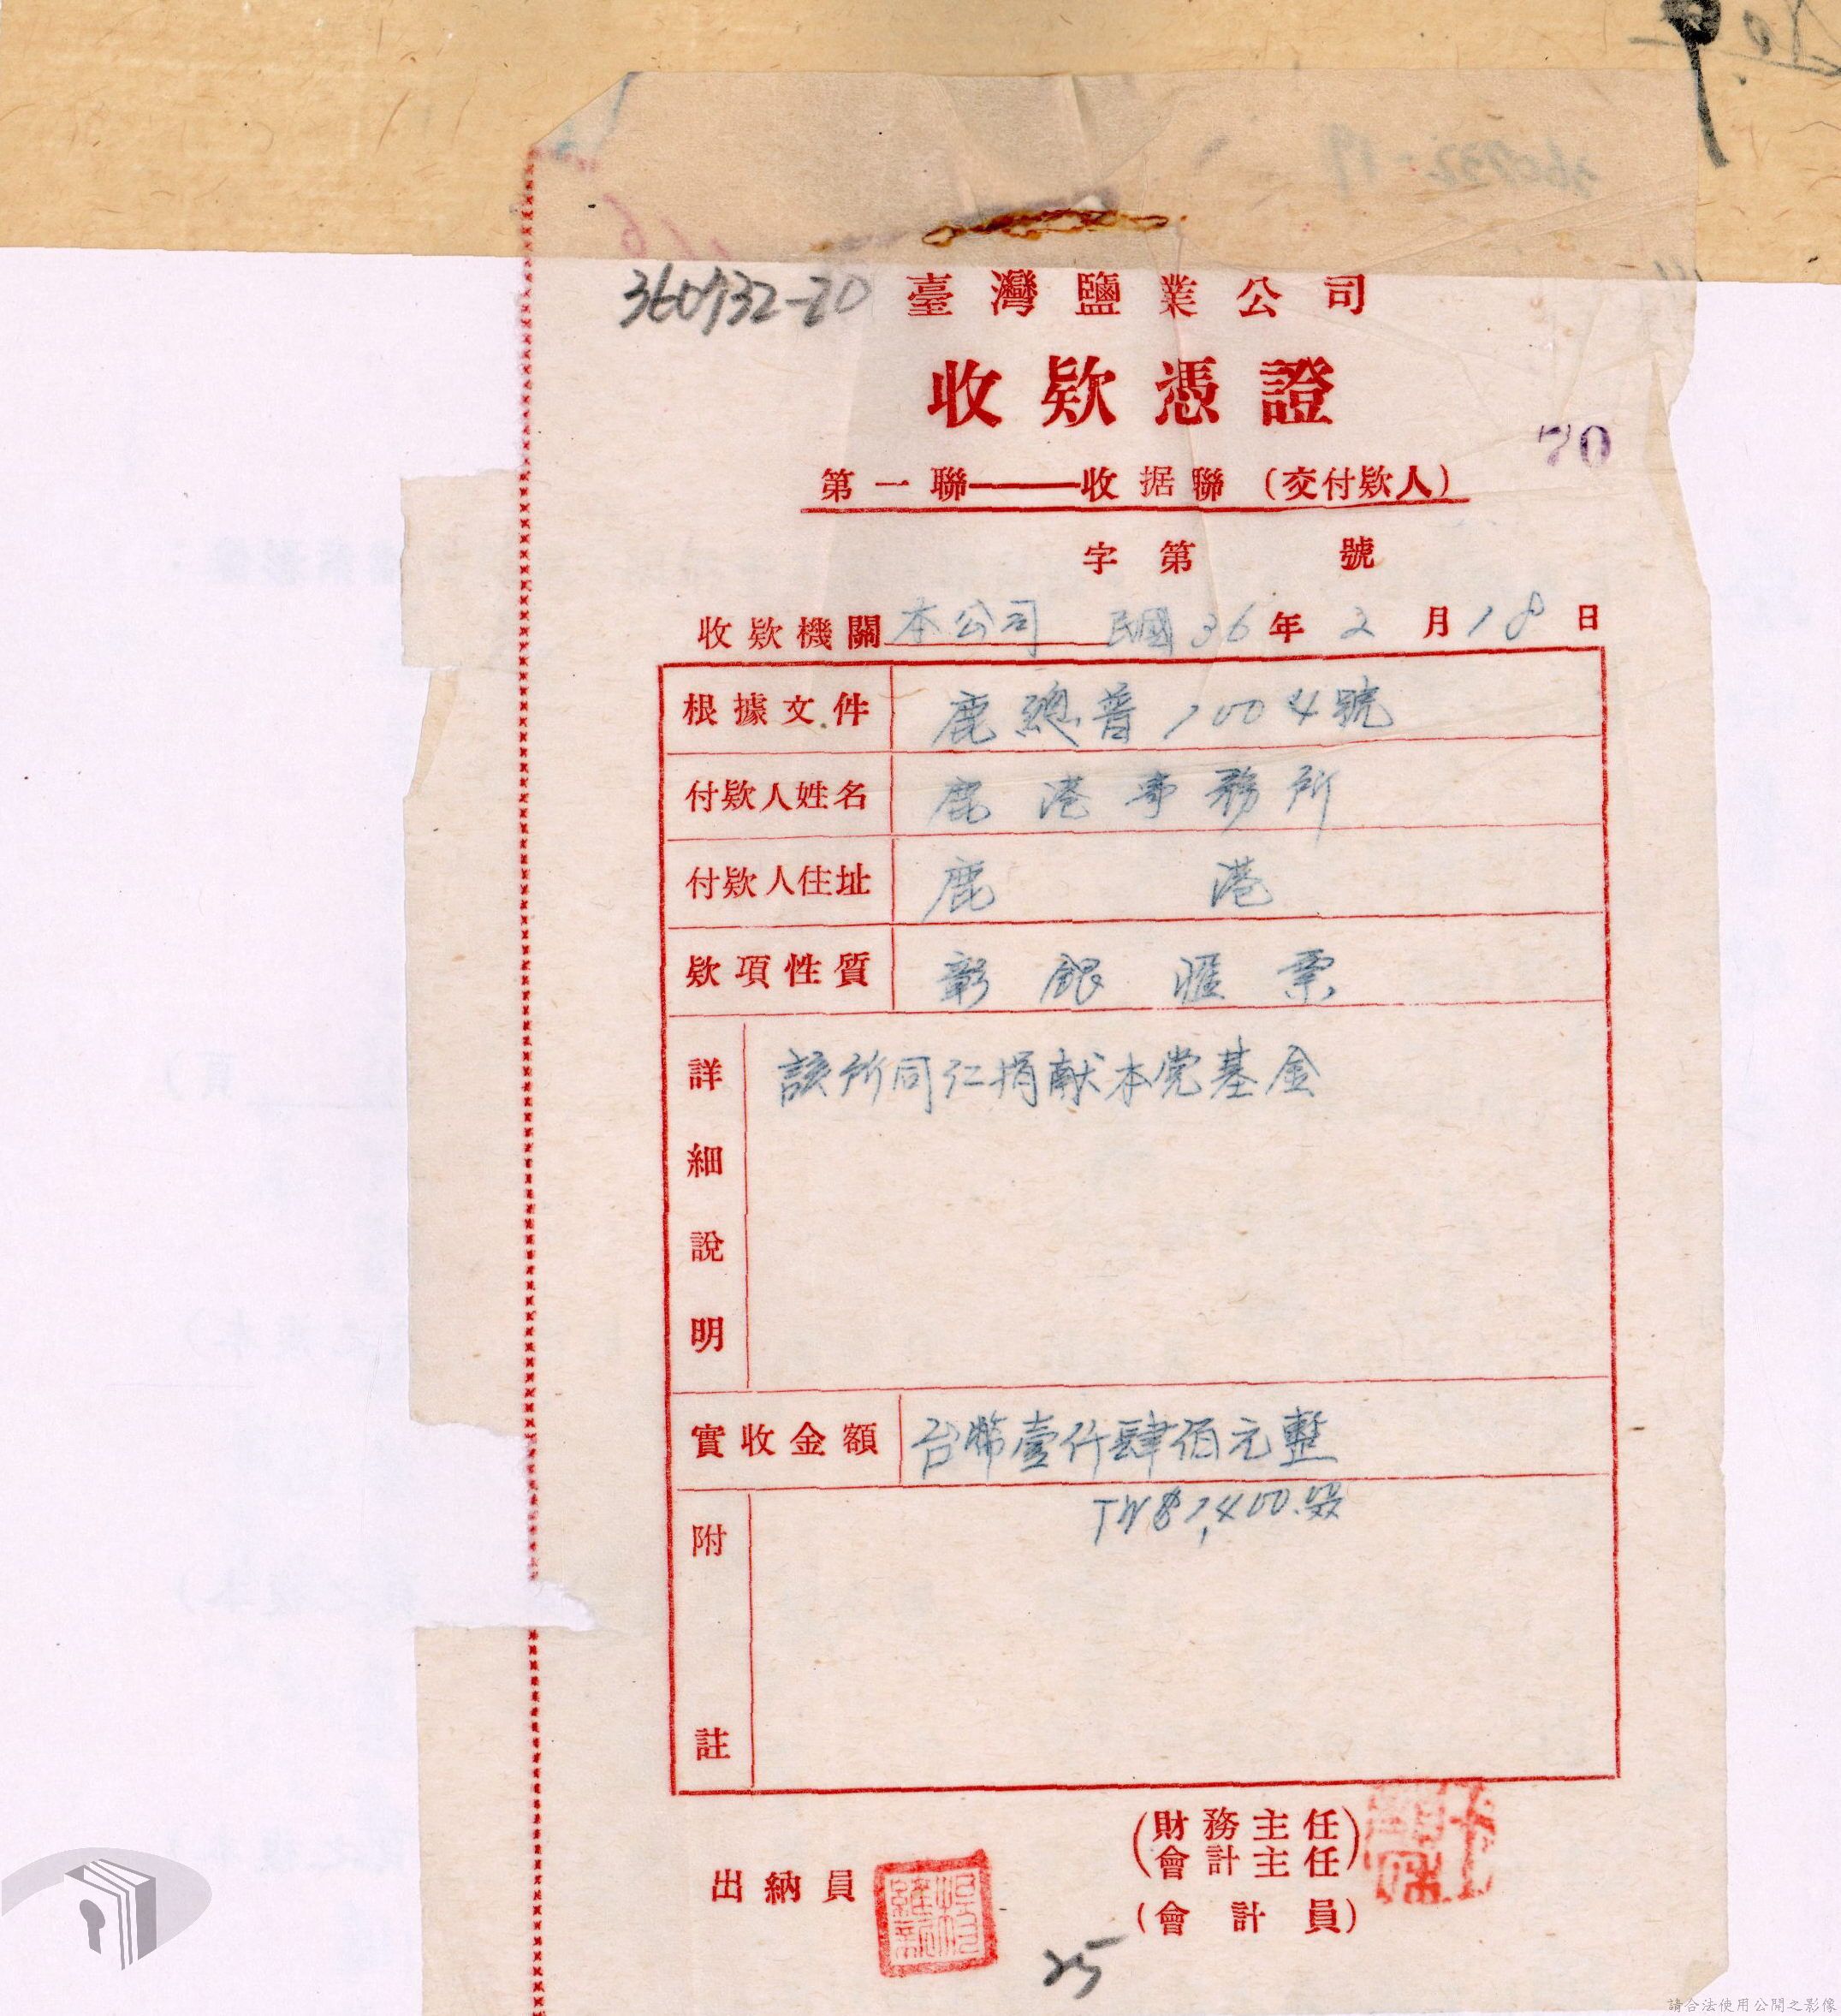 360732-20
臺灣鹽業公司
收欵憑證
70
第一聯——收据聯（交付欵人）
字第 號
收欵機關本公司 民國36年2月18日
根據文件 鹿總普1004號
付欵人姓名 鹿港事務所
付欵人住址 鹿港
欵項性質 彰銀匯票
詳細說明 該所同仁捐献本党基金
實收金額 台幣壹仟肆佰元整
TW$1,400.
附註
(財務主任)
(會計主任)
出納員
(會計員)
25
請合法使用公開之影像